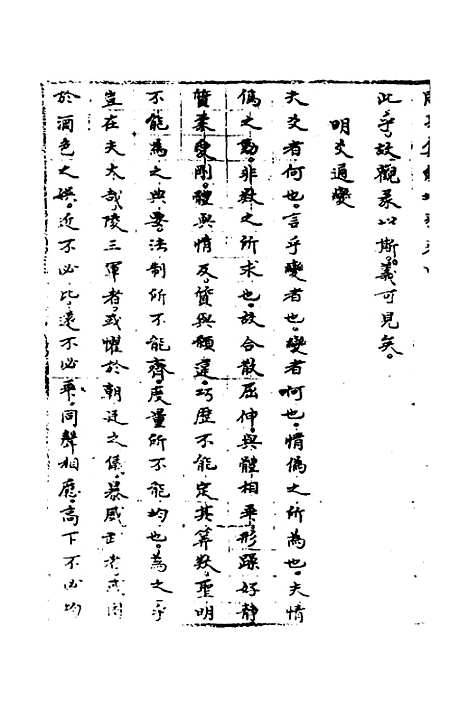 此乎故觀彖以斯。義可見矣。
明爻通變
夫爻者何也。言乎變者也。變者何也。情偽之所為也。夫情
偽之動。非數之所求也。故合散屈伸。與體相乖。形躁好靜
質柔愛剛。體與情反。質與願違。巧歷不能定其算數。聖明
不能為之典要。法制所不能齊。度量所不能均也。為之乎
豈在夫大哉。陵三軍者。或懼於朝廷之儀。暴威武者。或困
於酒色之娛。近不必比。遠不必乖。同聲相應。高下不必均